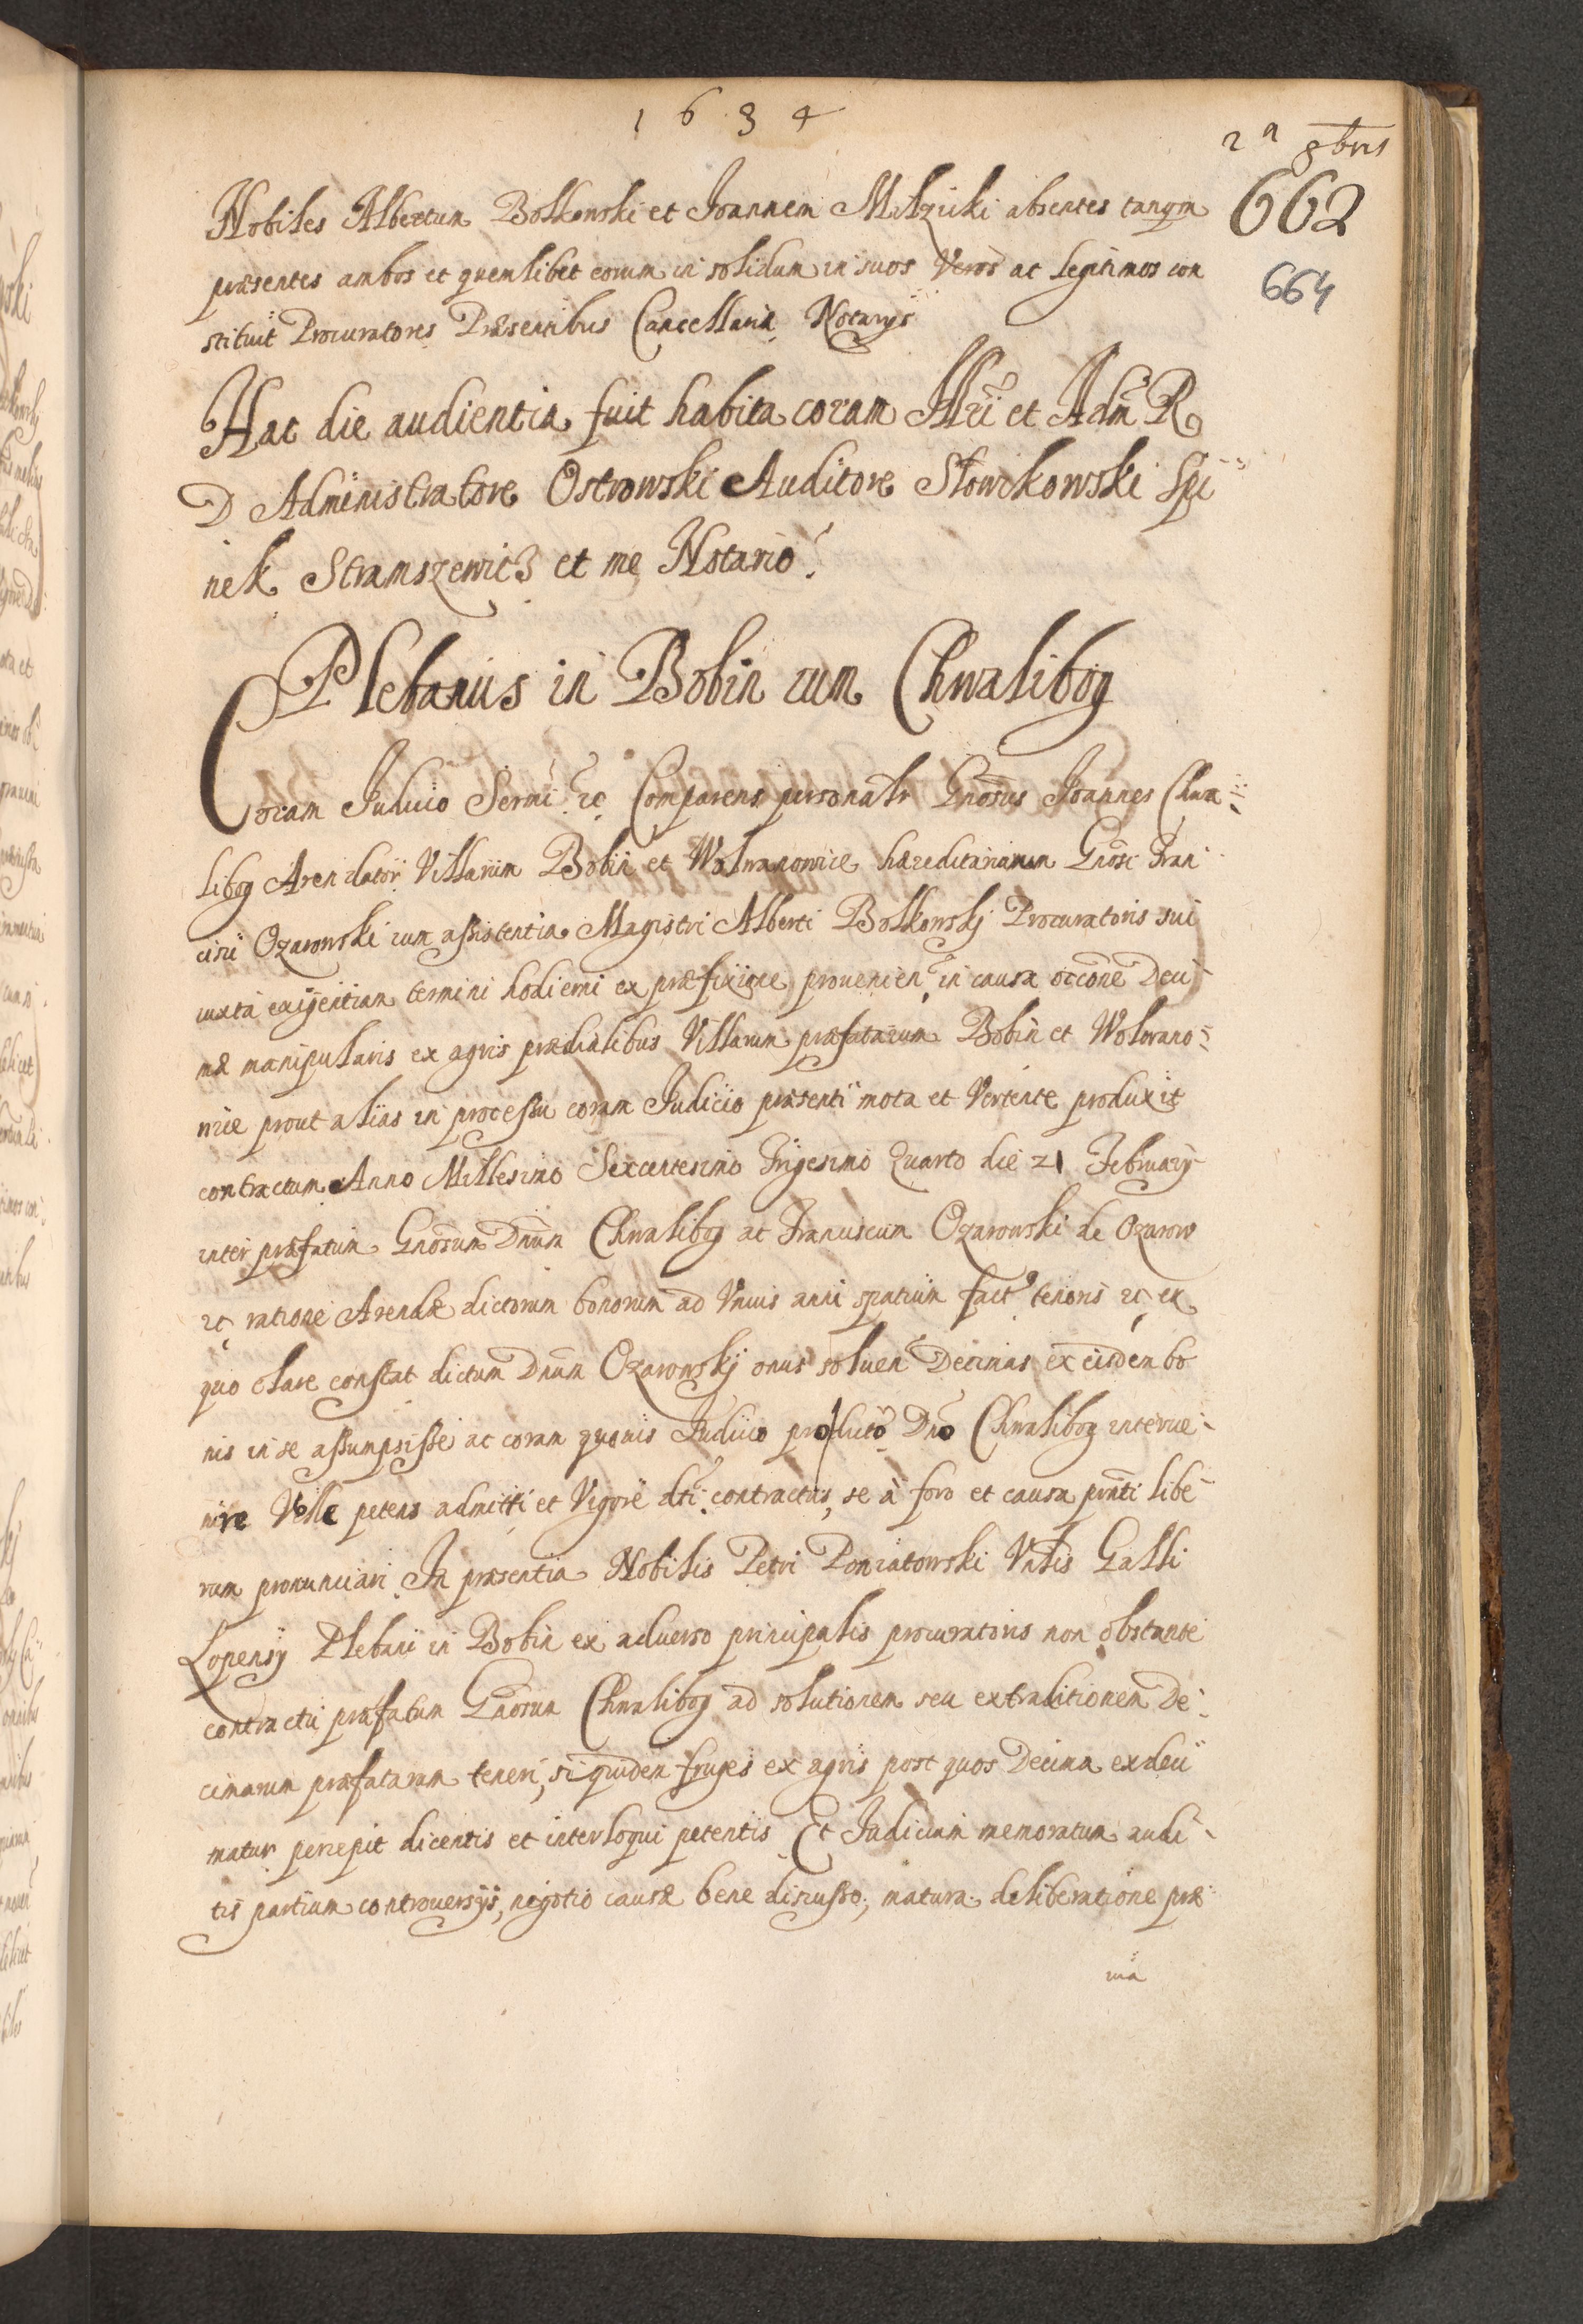 1634
2a 8bris
662
664
Nobiles Albertum Bolkowski et Joannem Milzicki absentes tanqm
præsentes ambos et quemlibet eorum in solidum in suos Veros ac legitimos con
stituit Procuratores Præsentibus Cancellariæ Notarijs
Hac die audientia fuit habita coram Illri et Adm R
D Administratore Ostrowski Auditore Słowikowski Spi
nek Stramszewicz et me Notario
Plebanus in Bobin cum Chwalibog
Coram Judicio Sermi etc Comparens personalr Gnosus Joannes Chwa
libog Arendator Villarum Bobin et Wolwanowice hæreditariarum Gnosi Fran
cisci Ozarowski cum assistentia Magistri Alberti Bolkowskj Procuratoris sui
iuxta exigentiam termini hodierni ex præfixione provenien in causa occone Deci
mæ manipularis ex agris prædialibus Villarum præfatarum Bobin et Wolwano
nice prout alias in processu coram Judicio præsenti mota et Vertente produxit
contractum Anno Millesimo Sexcentesimo Trigesimo Quarto die 21 February
inter præfatum Gnosum Dnum Chwalibog ac Franciscum Ozarowski de Ozarow
etc ratione Arendæ dictorum bonorum ad Unius anni spatium fact tenoris etc ex
quo clare constat dictum Dnum Ozarowskj onus soluen Decimas ex eisdem bo
nis in se assumpsisse ac coram quovis Judicio producto Dno Chwalibog interve
nire Velle petens admitti et Vigore dti contractus, se à foro et causa pnti libe
rum pronunciari In præsentia Nobilis Petri Poniatowski Vnlis Galli
Lopensy Plebani in Bobin ex adverso principalis procuratoris non obstante
contractu præfatum Gnosum Chwalibog ad solutionem seu extraditionem De
cimarum præfatarum teneri, siquidem fruges ex agris post quos Decima exdeci
matur percepit dicentis et interloqui petentis Et Judicium memoratum audi
tis partium controversijs, negotio causæ bene discusso, matura deliberatione præ
via